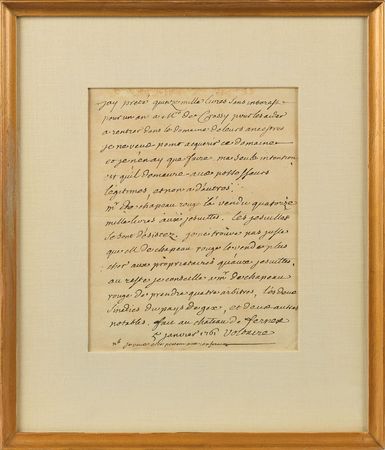 jay preté quinze mille livres sans interest
pour un an a Mrs de Crassy pour les aider
a rentrer dans le domaine de leurs ancetres
je ne veux point acquerir ce domaine
et je n'en ay que faire, ma seule intention
est qu'il demeure aux possesseurs
legitimes, et non a d'autres.
mr de chapeau rouge l'a vendu quatorze
mille livres aux jesuittes. les jesuittes
se sont desistez. je ne trouve pas juste
que mr de chapeau rouge le vende plus
cher aux proprietaires qu'aux jesuittes.
au reste je conseille a mr de chapeau
rouge de prendre quatre arbitres, les deux
sindics du pays de gex, et deux autres
notables. fait au château de Fernex
5 janvier 1761 Voltaire
nb